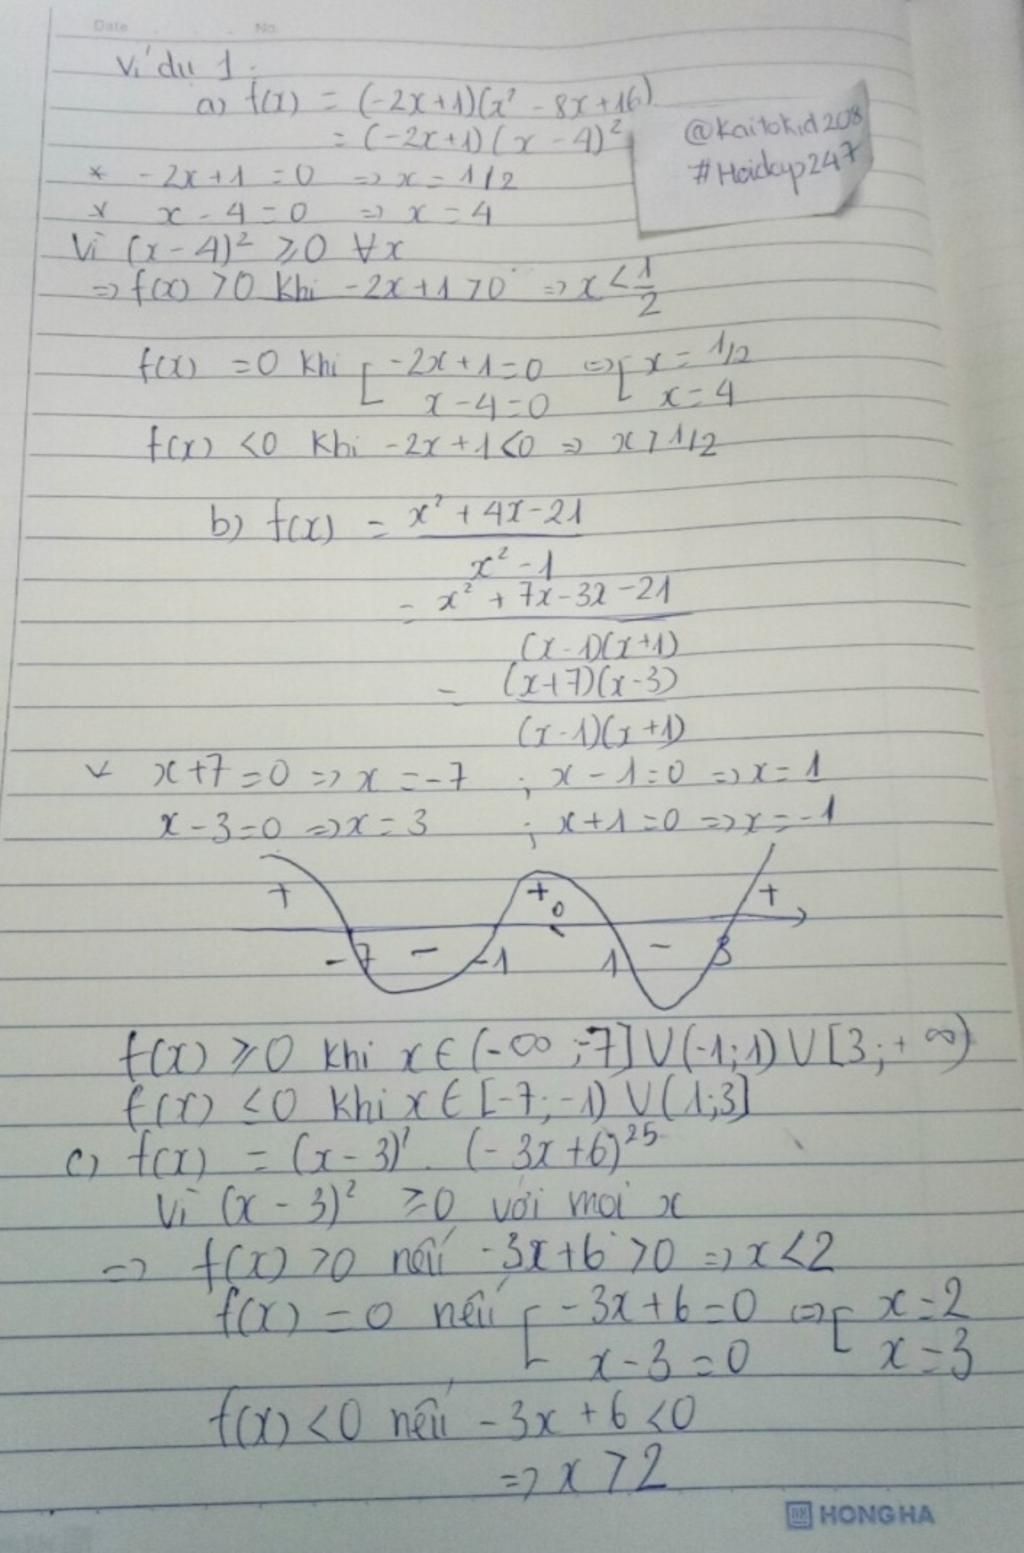 Date No.
Ví dụ 1:
a) f(x) = (-2x+1)(x² - 8x+16)
= (-2x+1)(x - 4)²
@Kaitokid208
#Hoidap247
* -2x+1 = 0 => x = 1/2
* x - 4 = 0 => x = 4
Vì (x - 4)² ≥ 0 ∀x
=> f(x) > 0 khi -2x+1 > 0 => x < 1/2
f(x) = 0 khi [ -2x+1=0 <=> [ x = 1/2
x-4=0 x=4
f(x) < 0 khi -2x+1<0 => x > 1/2
b) f(x) = x² + 4x - 21
x² - 1
= x² + 7x - 3x - 21
(x-1)(x+1)
= (x+7)(x-3)
(x-1)(x+1)
* x+7 = 0 => x = -7 ; x - 1 = 0 => x = 1
x - 3 = 0 => x = 3 ; x + 1 = 0 => x = -1
+ + 0 - +
-7 - -1 1 3
f(x) ≥ 0 khi x ∈ (-∞; -7] ∪ (-1;1) ∪ [3; +∞)
f(x) ≤ 0 khi x ∈ [-7; -1) ∪ (1;3]
c) f(x) = (x - 3)² . (-3x+6)²⁵
Vì (x - 3)² ≥ 0 với mọi x
=> f(x) > 0 nếu -3x+6 > 0 => x < 2
f(x) = 0 nếu [ -3x+6=0 <=> [ x = 2
x - 3 = 0 x = 3
f(x) < 0 nếu -3x+6 < 0
=> x > 2
HONG HA